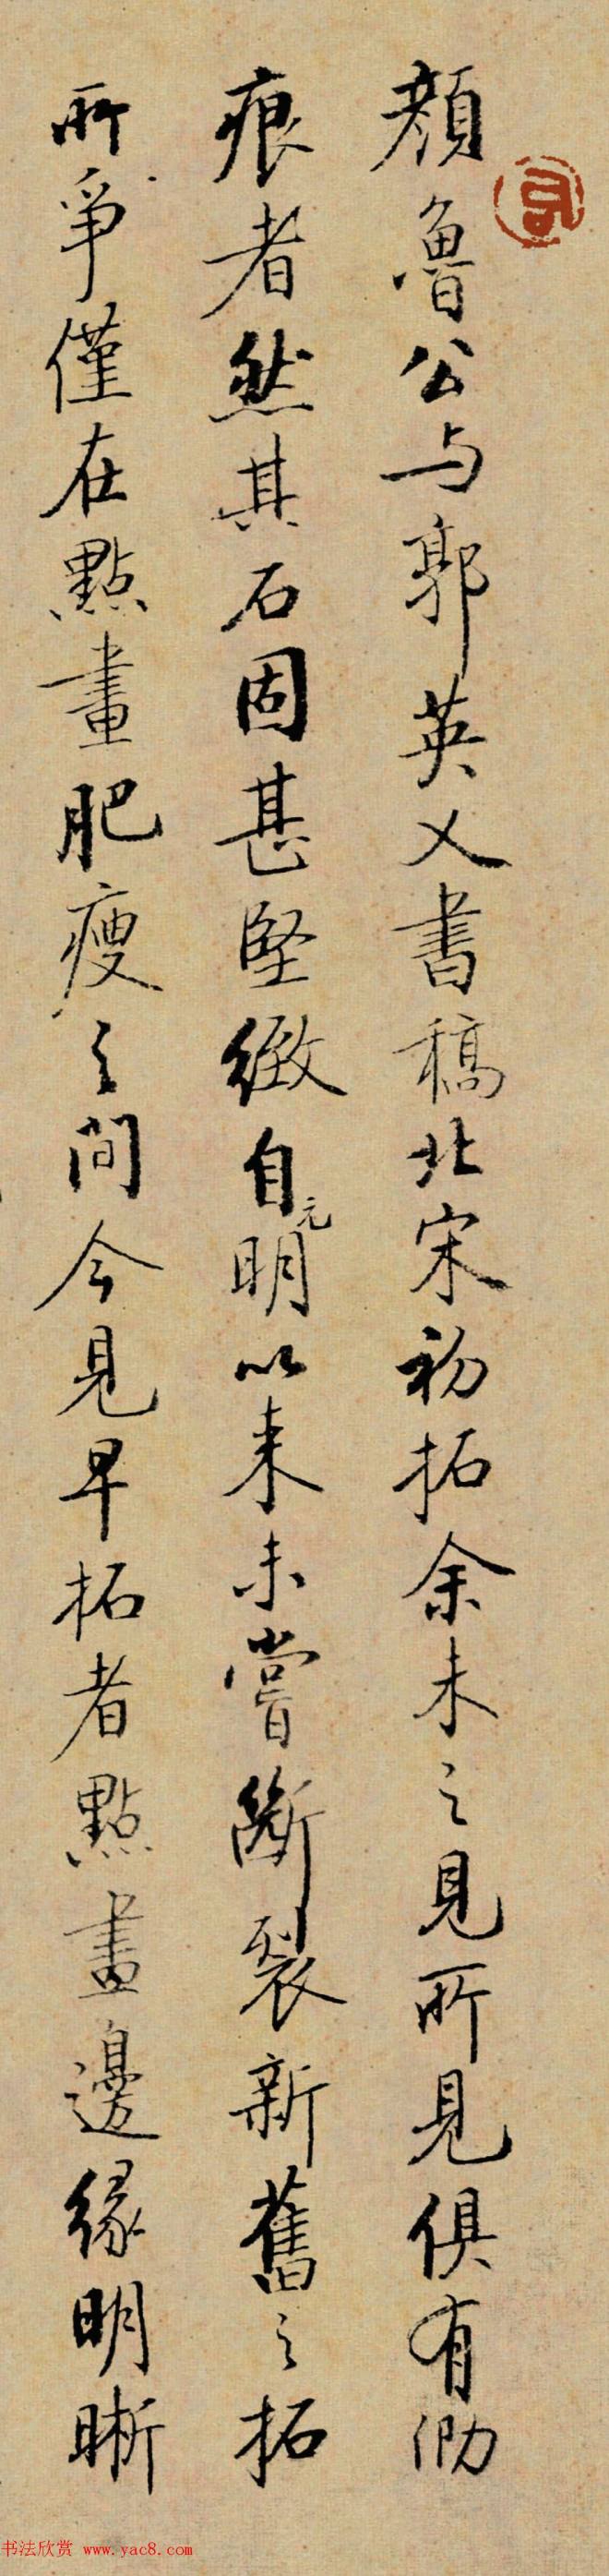 顔魯公与郭英乂書稿北宋初拓余未之見所見俱有泐
痕者然其石固甚堅緻自元明以来未嘗斷裂新舊之拓
所爭僅在點畫肥瘦之间今見早拓者點畫邊緣明晰
书法欣赏 www.yac8.com